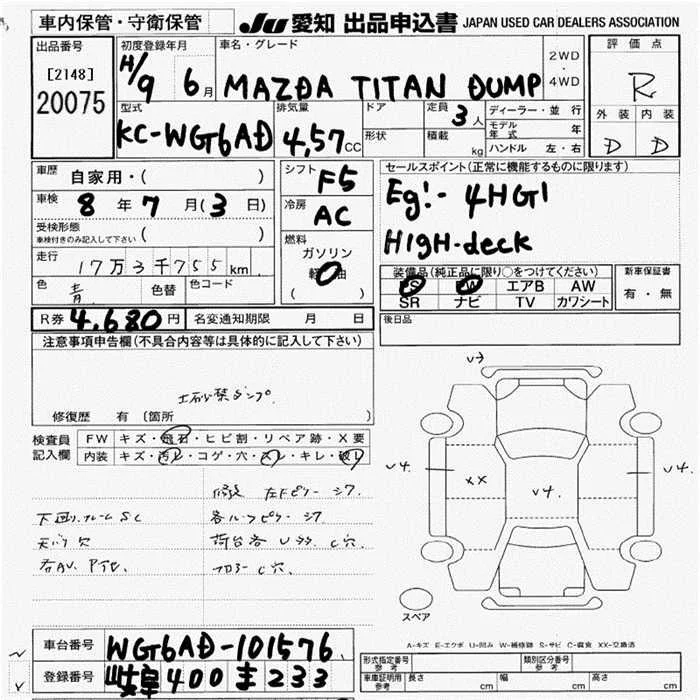 車内保管・守衛保管
JU 愛知 出品申込書 JAPAN USED CAR DEALERS ASSOCIATION
出品番号
[2148]
20075
初度登録年月
H/9 6月
車名・グレード
MAZDA TITAN DUMP
2WD
・
4WD
評価点
R
外装 内装
D D
型式
KC-WG6AD
排気量
4,57cc
ドア
形状
定員 3人
積載 kg
ディーラー・並行
モデル年式 年
ハンドル 左・右
車歴
自家用・( )
車検
8年7月(3日)
受検形態
車検付きのみ記入して下さい ( )
走行
17万3千755km
色
青
色替
色コード
シフト
F5
冷房
AC
燃料
ガソリン
軽油
( )
セールスポイント(正常に機能するものに限ります)
Eg!- 4HG1
HIGH-deck
装備品(純正品に限り○をつけてください)
PS PW エアB AW
SR ナビ TV カワシート
新車保証書
有・無
R券 4,680円
名変通知期限 月 日
後日品
注意事項申告欄(不具合内容等は具体的に記入して下さい)
土砂禁ダンプ
修復歴 有 〔箇所 〕
検査員
記入欄
FW キズ・飛石・ヒビ割・リペア跡・X要
内装 キズ・汚レ・コゲ・穴・スレ・キレ・破レ
修復 左Fピラー シワ
下廻り.フレーム SC
各ルーフピラー シワ
天バリ 欠
荷台各 U多 C穴
フロアー C穴
U3
U4.
XX
U4.
U4.
スペア
A-キズ E-エクボ U-凹み W-補修跡 S-サビ C-腐食 XX-交換済
車台番号
WG6AD-101576
登録番号
岐阜 400 ま 233
形式指定番号
参考
類別区分番号
参考
車庫証明用
参考
長さ cm
幅 cm
高さ cm